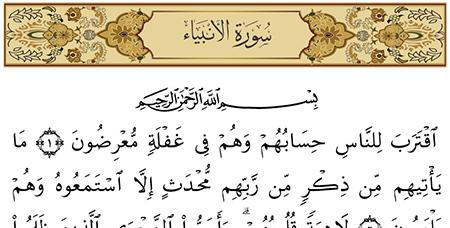 سُورَةُ الأَنبِيَاءِ
بِسْمِ اللَّهِ الرَّحْمَٰنِ الرَّحِيمِ
ٱقْتَرَبَ لِلنَّاسِ حِسَابُهُمْ وَهُمْ فِى غَفْلَةٍ مُّعْرِضُونَ ﴿١﴾ مَا
يَأْتِيهِم مِّن ذِكْرٍ مِّن رَّبِّهِم مُّحْدَثٍ إِلَّا ٱسْتَمَعُوهُ وَهُمْ